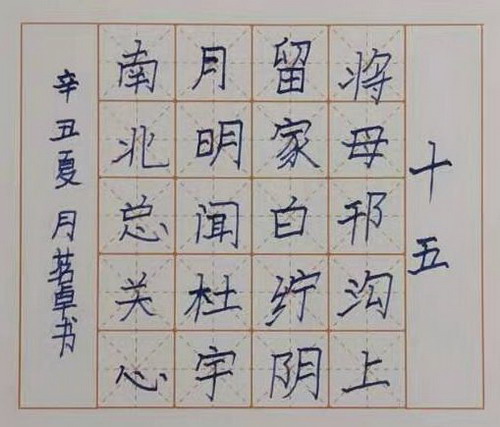 十五
将母邗沟上
留家白纻阴
月明闻杜宇
南北总关心
辛丑夏月茗卓书